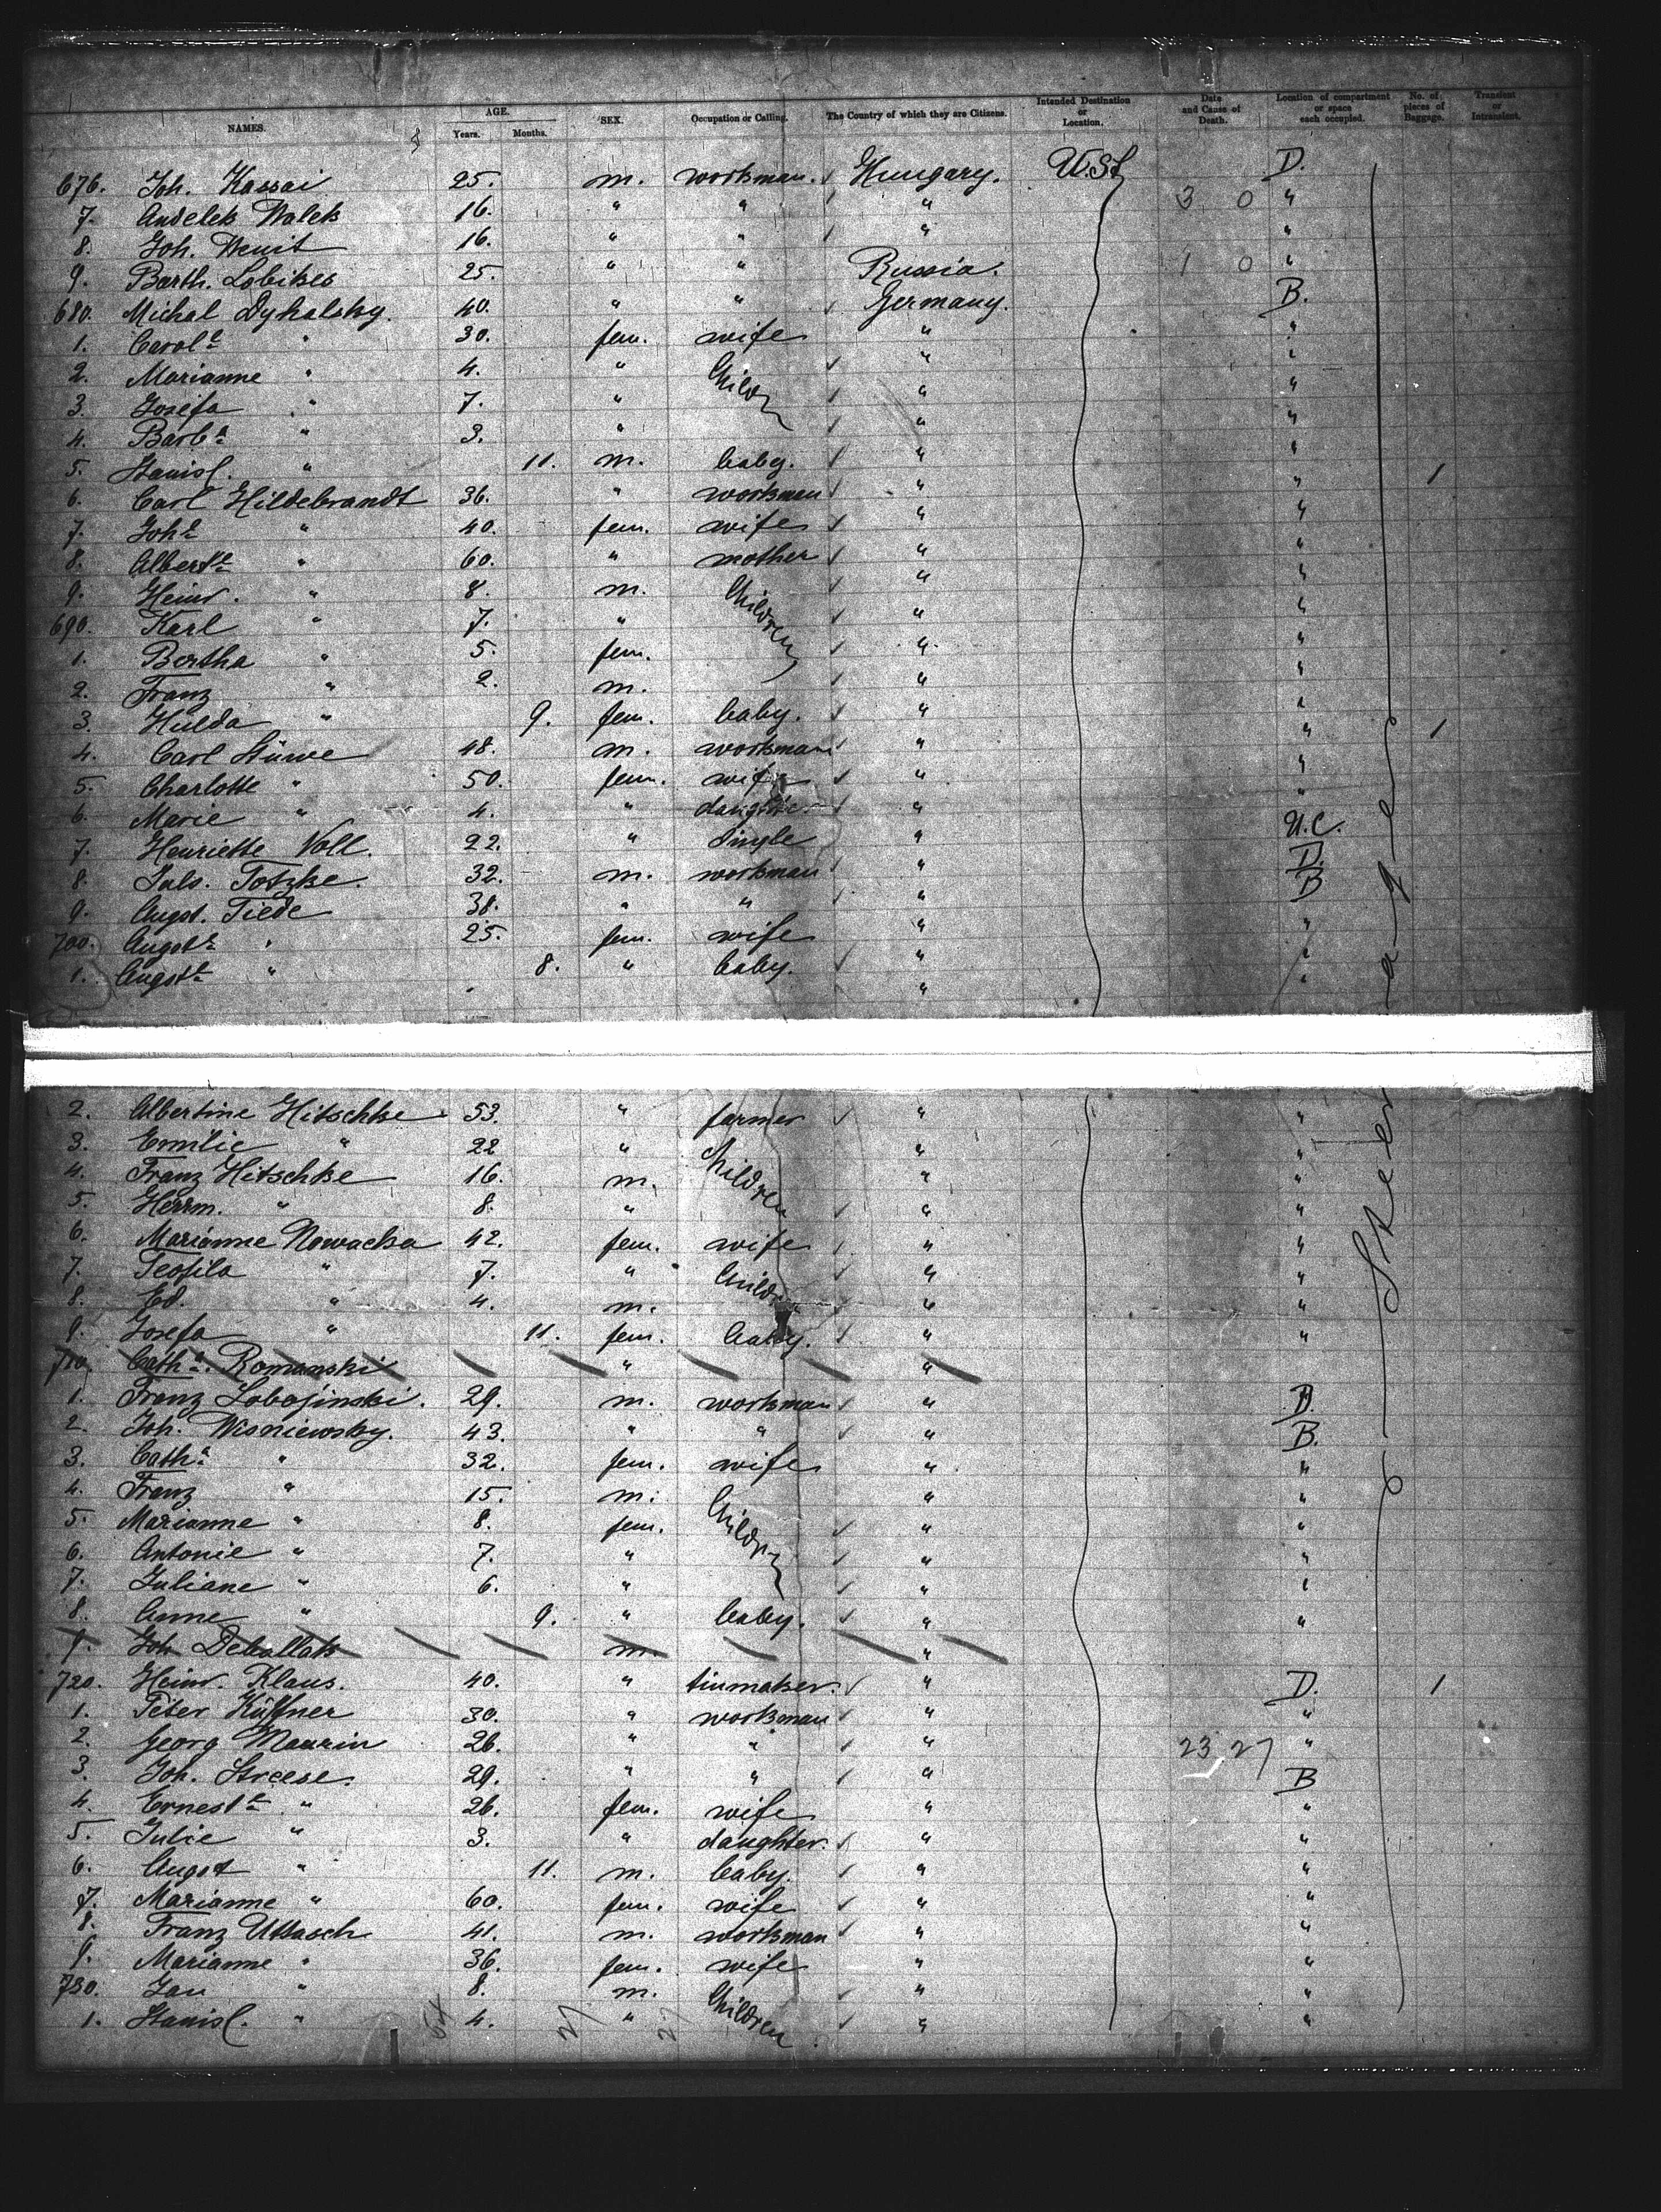 NAMES. AGE. Years. Months. SEX. Occupation or Calling. The Country of which they are Citizens. Intended Destination or Location. Date and Cause of Death. Location of compartment or space each occupied. No. of pieces of Baggage. Transient or Intransient.
676. Joh. Kassai 25. m. workman. Hungary. U.St. D.
7. Andelek Walek 16. " " " 3 0 "
8. Joh. 16. " " "
9. Barth. 25. " " Russia. 1 0 "
680. Michal Dyhalsky. 40. " " Germany. B.
1. Carolᵉ " 30. fem. wife " "
2. Marianne " 4. " Childr " "
3. Josefa " 7. " " "
4. Barbᵃ " 3. " " "
5. Stanisl. " 11. m. baby. " "
6. Carl Hildebrandt 36. " workman " " 1
7. Johᵉ " 40. fem. wife " "
8. Albertᵉ " 60. " mother " "
9. Heinr. " 8. m. Children " "
690. Karl " 7. " " "
1. Bertha " 5. fem. " "
2. Franz " 2. m. " "
3. Hulda " 9. fem. baby. " "
4. Carl Stüwe 48. m. workman " " 1
5. Charlotte " 50. fem. wife " "
6. Marie " 4. " daughter " "
7. Henriette Noll. 22. " single " U.C.
8. Juls. Totzke. 32. m. workman " D.
9. Augst. Tiede 38. " " " B
700. Augstᵉ " 25. fem. wife " "
1. Augstᵉ " 8. " baby. " "
"
2. Albertine Hitschke 53. " farmer " "
3. Emilie " 22 " Children " "
4. Franz Hitschke 16. m. " "
5. Herrm. " 8. " " "
6. Marianne Nowacka 42. fem. wife " "
7. Teofila " 7. " Childr " "
8. Ed. " 4. m. " "
9. Josefa " 11. fem. baby. " "
710 Cathᵃ. Romanski " "
1. Franz Lobojinski. 29. m. workman " D.
2. Joh. Wisniewsky. 43. " " " B.
3. Cathᵃ " 32. fem. wife " "
4. Franz " 15. m. Childr " "
5. Marianne " 8. fem. " "
6. Antonie " 7. " " "
7. Juliane " 6. " " "
8. Anne " 9. " baby. " "
9. Joh m. "
720. Heinr. Klaus. 40. " tinmaker. " D. 1
1. Peter Küffner 30. " workman " "
2. Georg Maurin 26. " " " 23 27 "
3. Joh. Streese. 29. " " " B
4. Ernestᵉ " 26. fem. wife " "
5. Julie " 3. " daughter. " "
6. Augst " 11. m. baby. " "
7. Marianne " 60. fem. wife " "
8. Franz 41. m. workman " "
9. Marianne " 36. fem. wife " "
730. Jan " 8. m. Children " "
1. Stanisl. " 4. " " "
Steerage